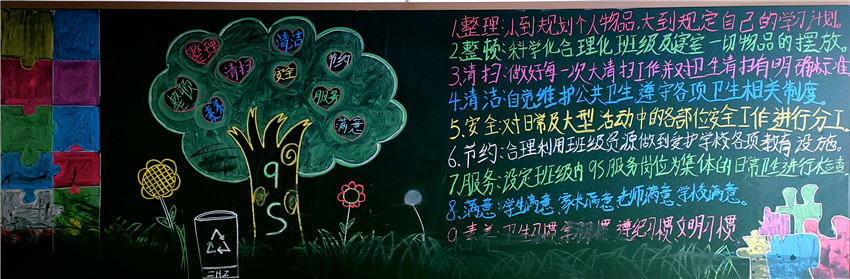 整理
清洁
清扫
安全
节约
整顿
素养
服务
满意
9S
1.整理:小到规划个人物品,大到规定自己的学习计划。
2.整顿:科学化合理化班级及寝室一切物品的摆放。
3.清扫:做好每一次大清扫工作并对卫生清扫有明确标准
4.清洁:自觉维护公共卫生遵守各项卫生相关制度。
5.安全:对日常及大型活动中的各部位安全工作进行分工。
6.节约:合理利用班级资源做到爱护学校各项教育设施。
7.服务:设定班级内9S服务岗位为集体的日常卫生进行检查
8.满意:学生满意,家长满意,老师满意,学校满意。
9.素养:卫生习惯 学习习惯 遵纪习惯 文明习惯